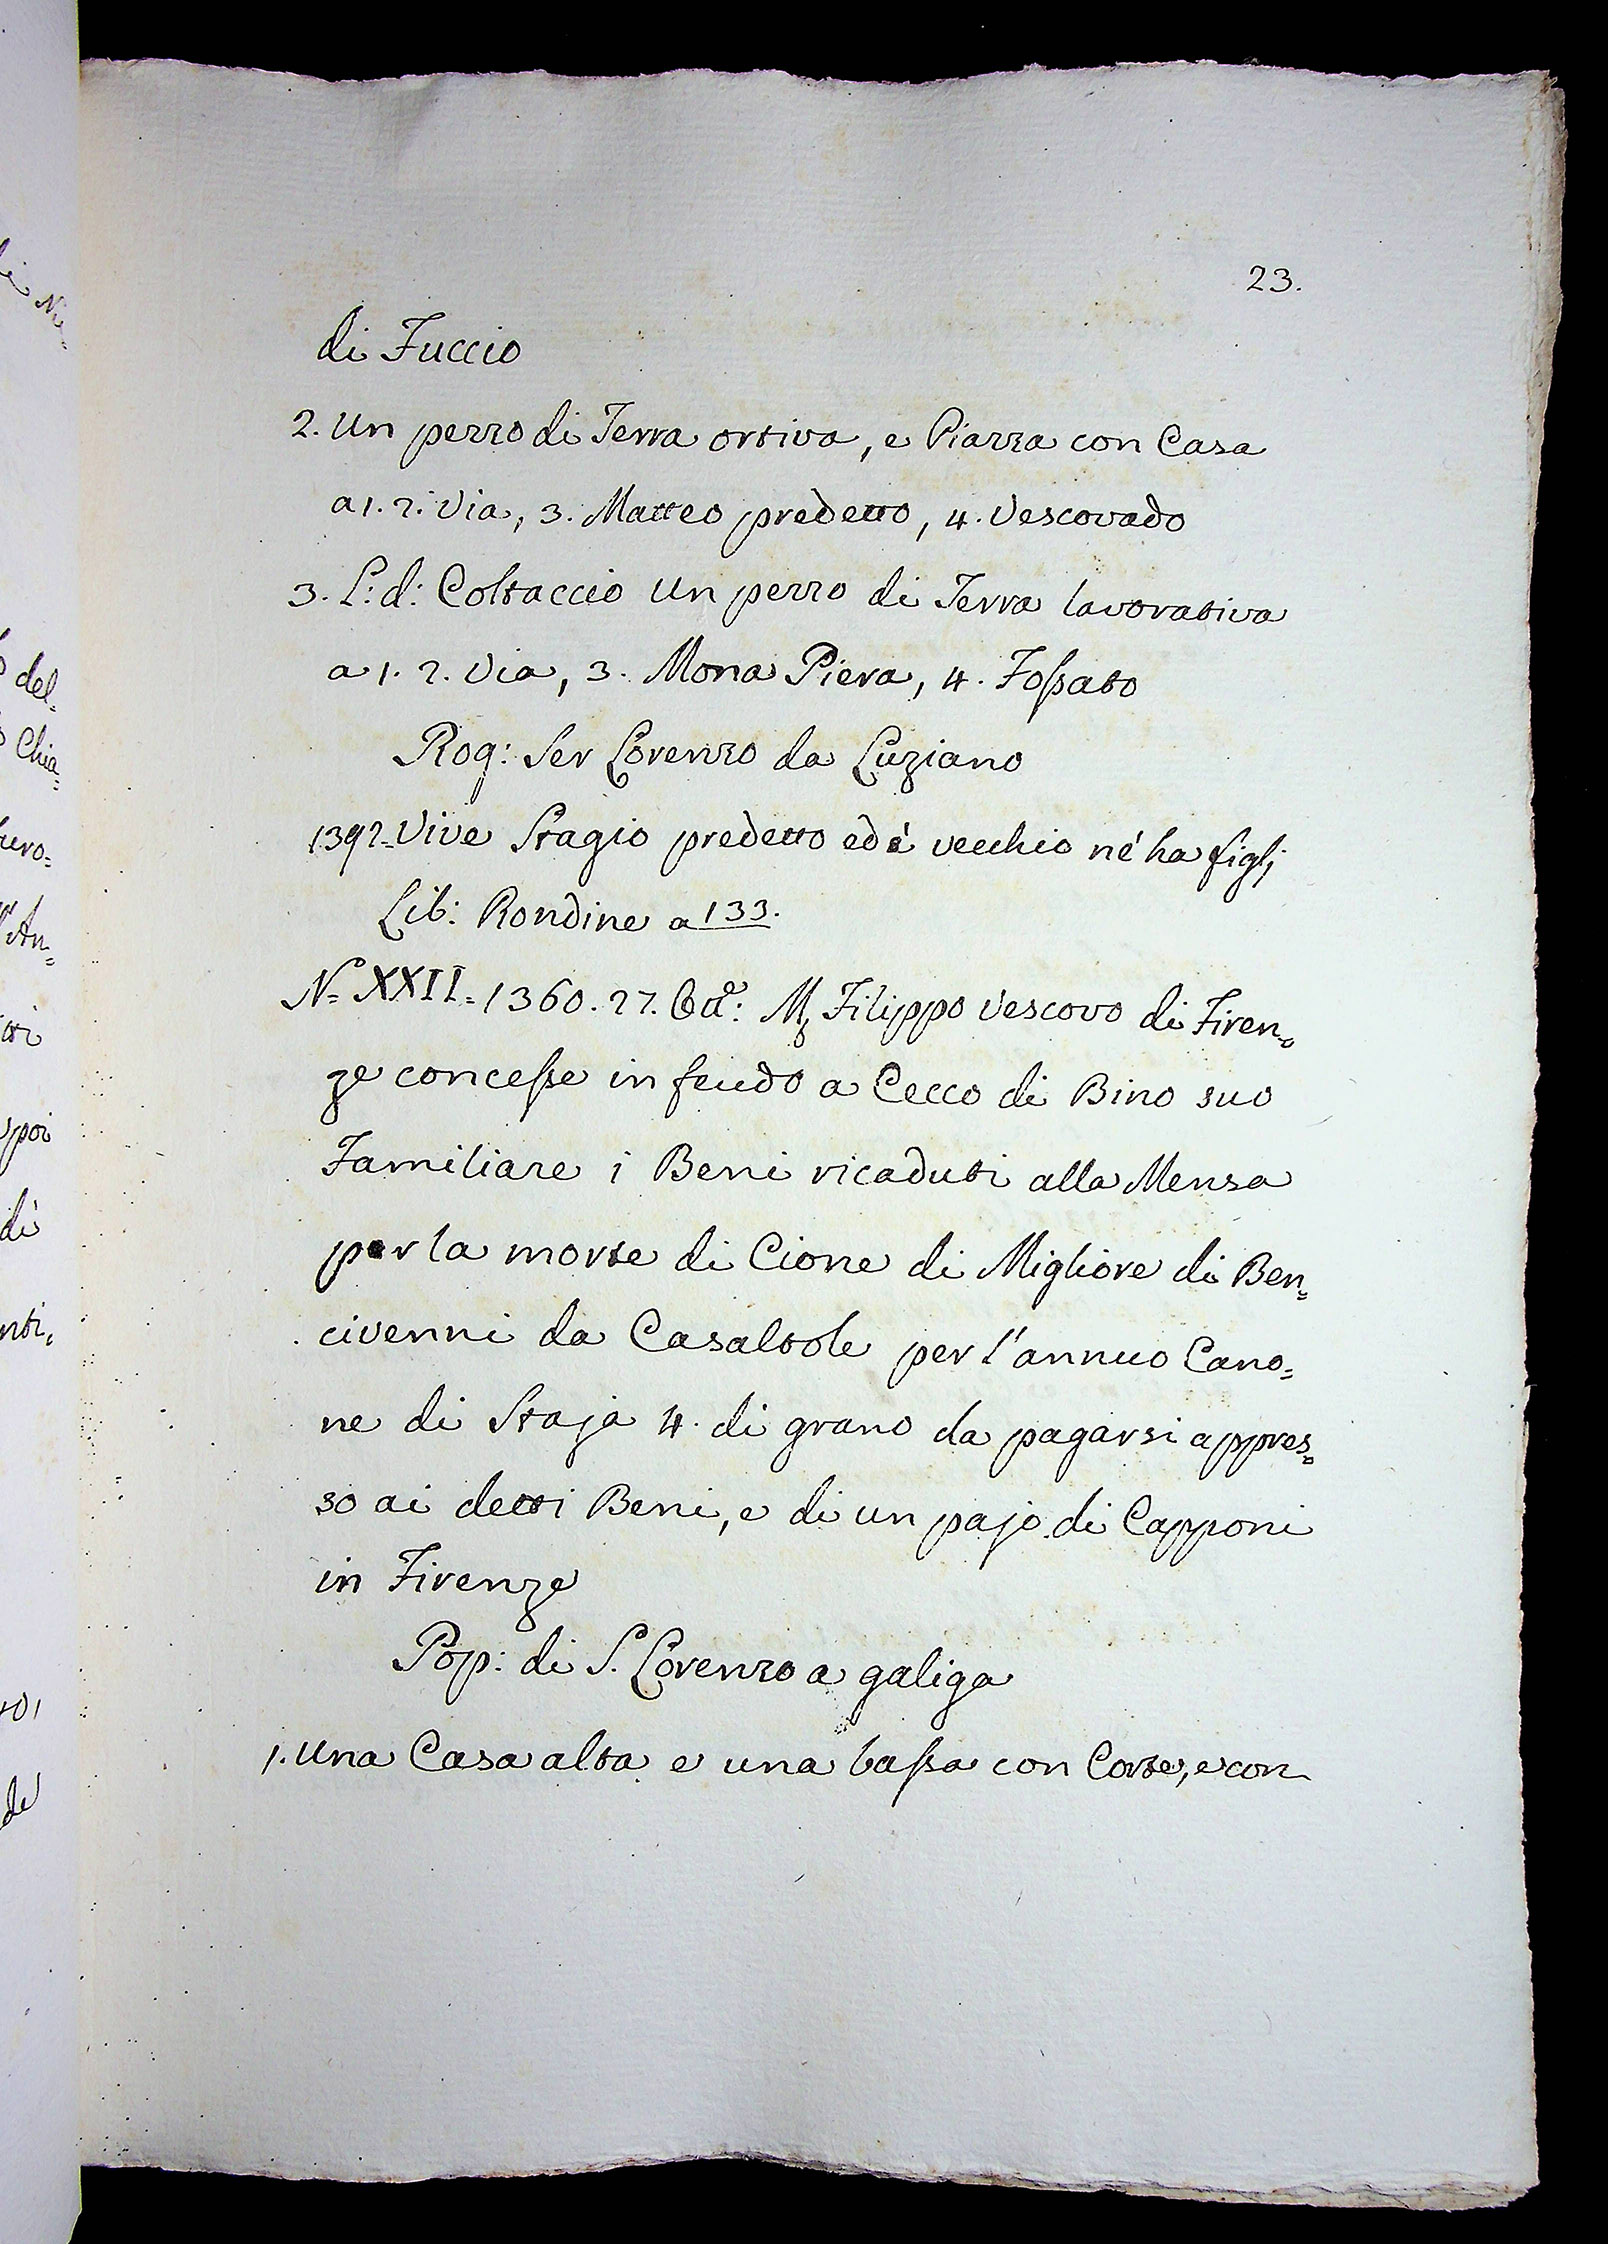 23.
di Fuccio
2. Un pezzo di Terra ortiva, e Piazza con Casa
a 1. 2. Via, 3. Matteo predetto, 4. Vescovado
3. L: d: Coltaccio Un pezzo di Terra lavorativa
a 1. 2. Via, 3. Mona Piera, 4. Fossato
Rog: Ser Lorenzo da Luziano
1392= Vive Stagio predetto ed è vecchio né ha figlj
Lib: Rondine a 133.
N= XXII= 1360. 27. Ott.e: M. Filippo Vescovo di Firen=
ze concesse in feudo a Cecco di Bino suo
Familiare i Beni ricaduti alla Mensa
per la morte di Cione di Migliore di Ben=
civenni da Casaltole per l'annuo Cano=
ne di Staja 4. di grano da pagarsi appres=
so ai detti Beni, e di un pajo di Capponi
in Firenze
Pop: di S. Lorenzo a galiga
1. Una Casa alta e una bassa con Corte, e con
del=
Chia=
di